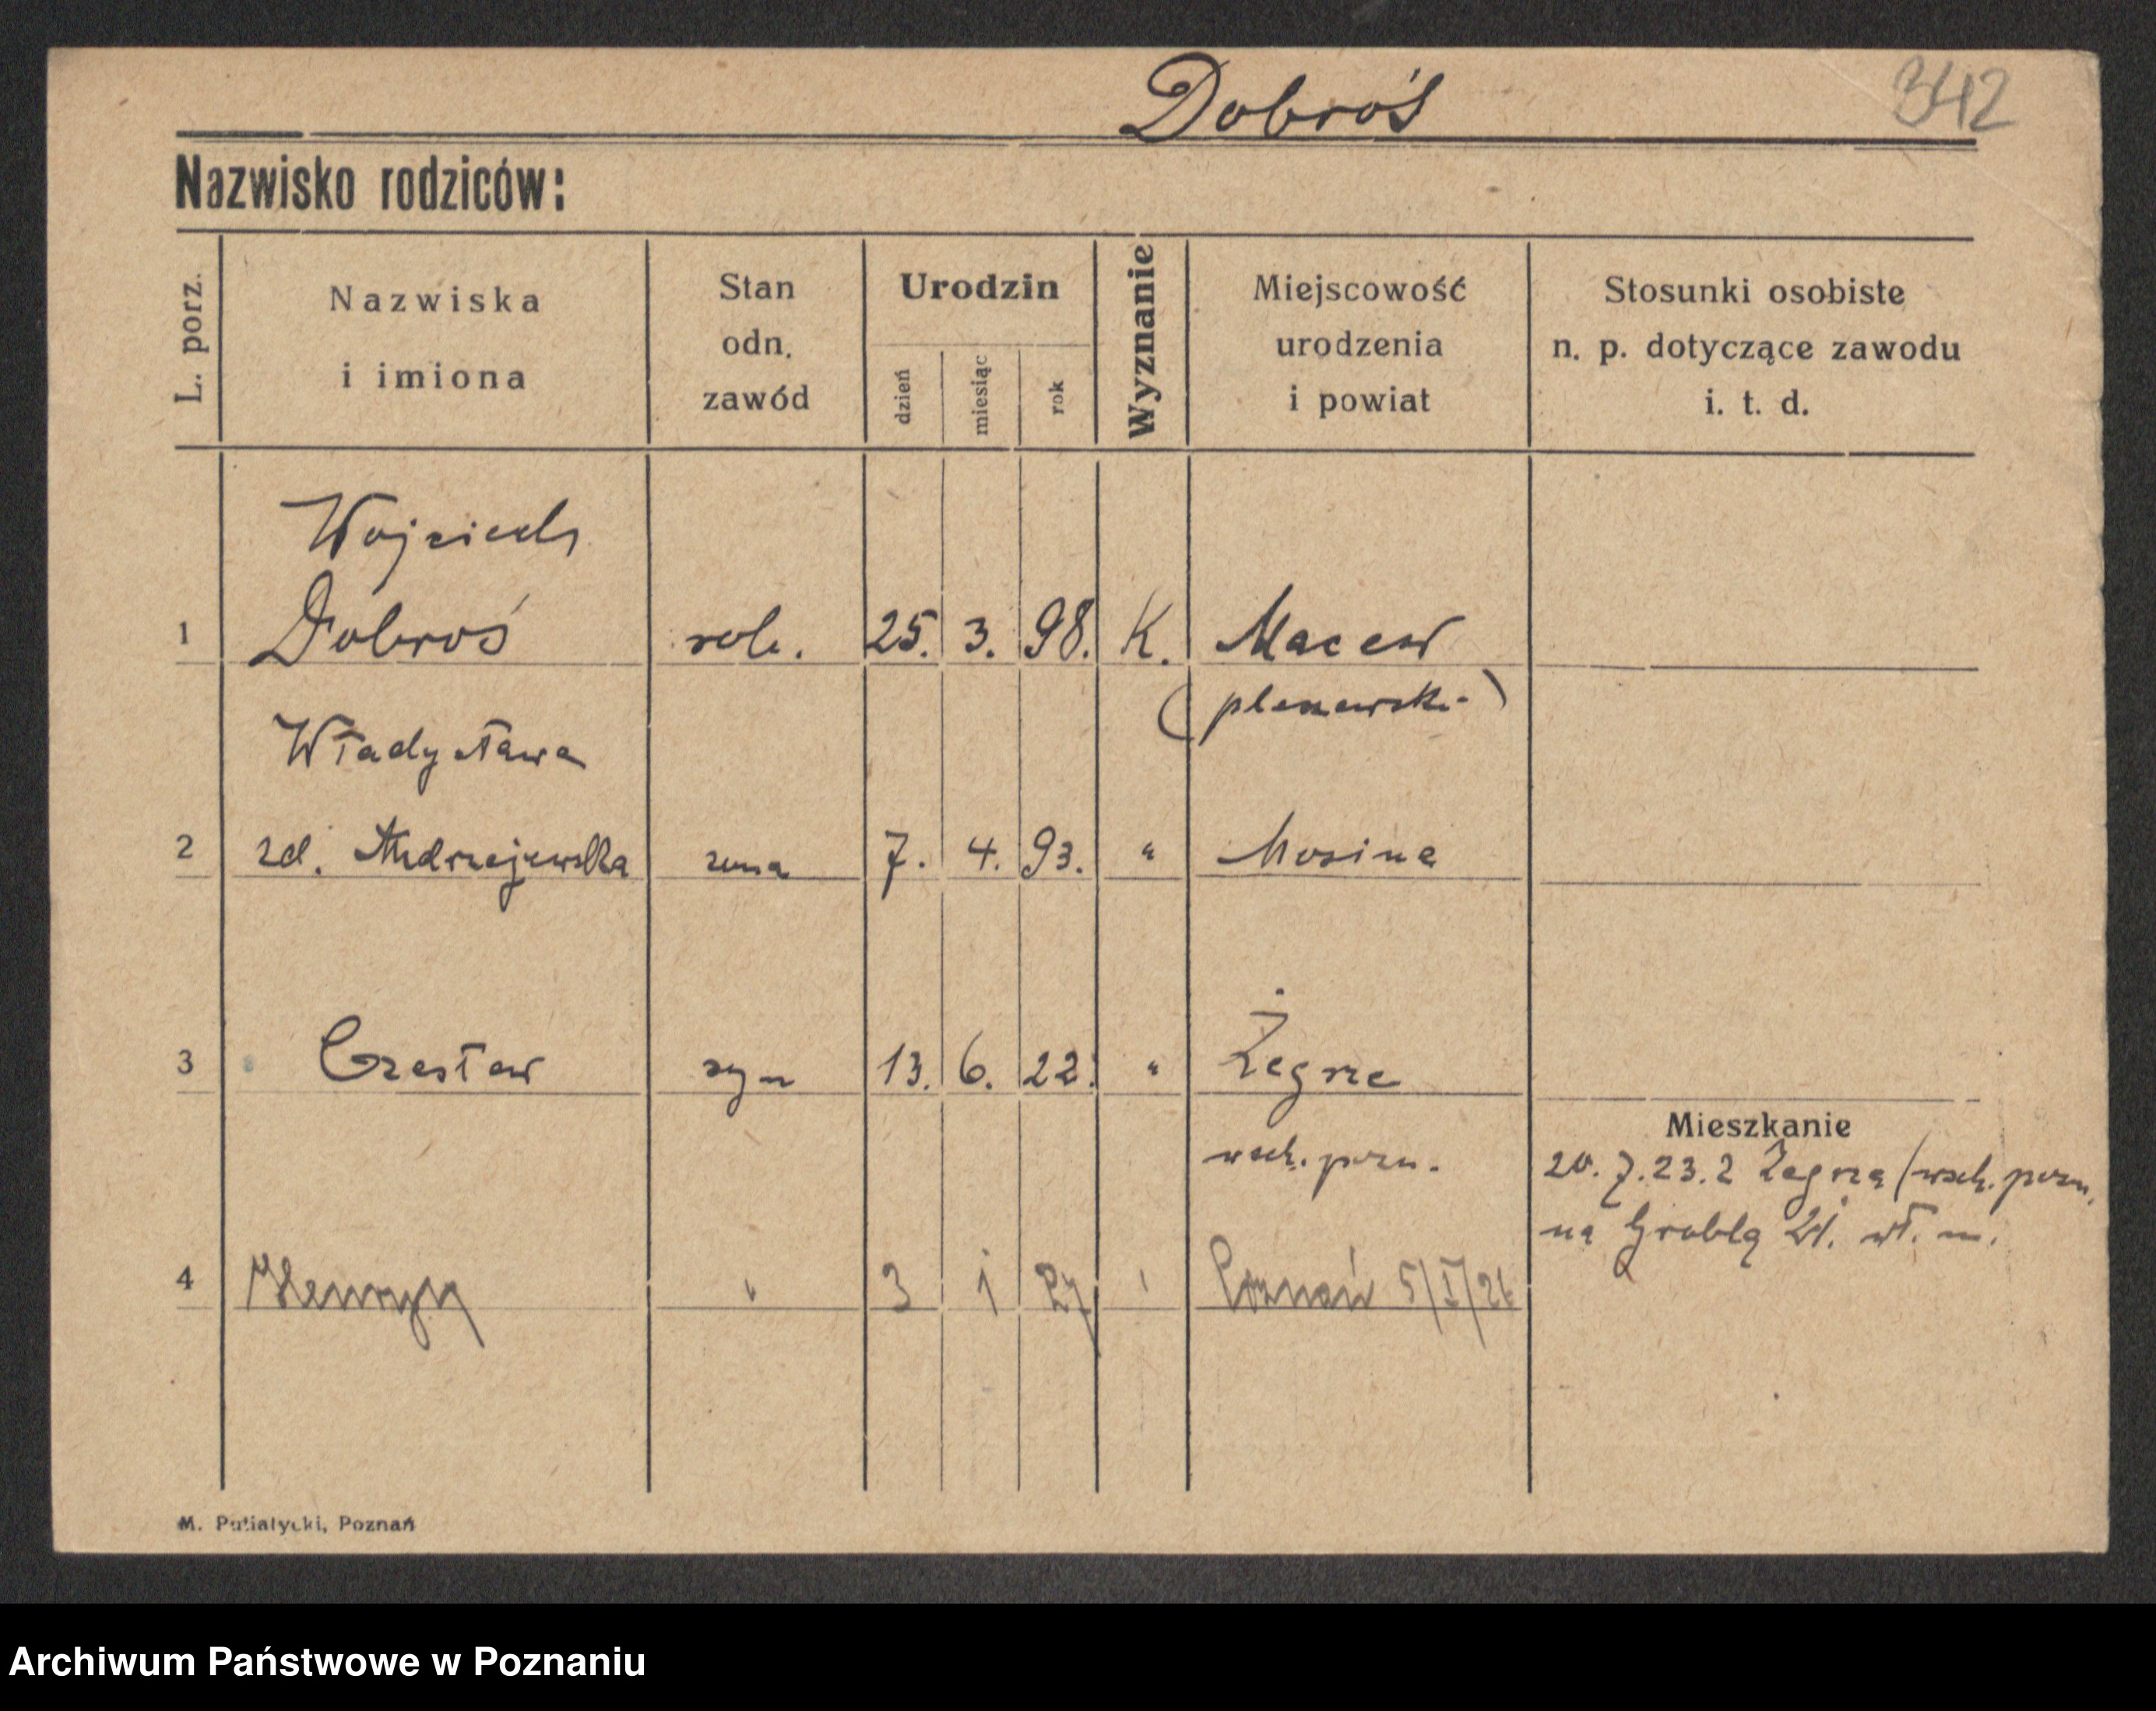 Dobroś 342
Nazwisko rodziców:
L. porz.
Nazwiska
i imiona
Stan
odn.
zawód
Urodzin
dzień
miesiąc
rok
Wyznanie
Miejscowość
urodzenia
i powiat
Stosunki osobiste
n. p. dotyczące zawodu
i. t. d.
Wojciech
1 Dobroś rob. 25. 3. 98. K. Macew
(pleszewski)
Władysława
2 zd. Andrzejewska żona 7. 4. 93. " Mosina
3 Czesław syn 13. 6. 22. " Żegrze
wsch. pozn.
Mieszkanie
20. 7. 23. z Żegrza (wsch. pozn.
na Groblą
4 Henryk " 3 1 27 " Poznań 5/I/26
M. Putiatycki, Poznań
Archiwum Państwowe w Poznaniu